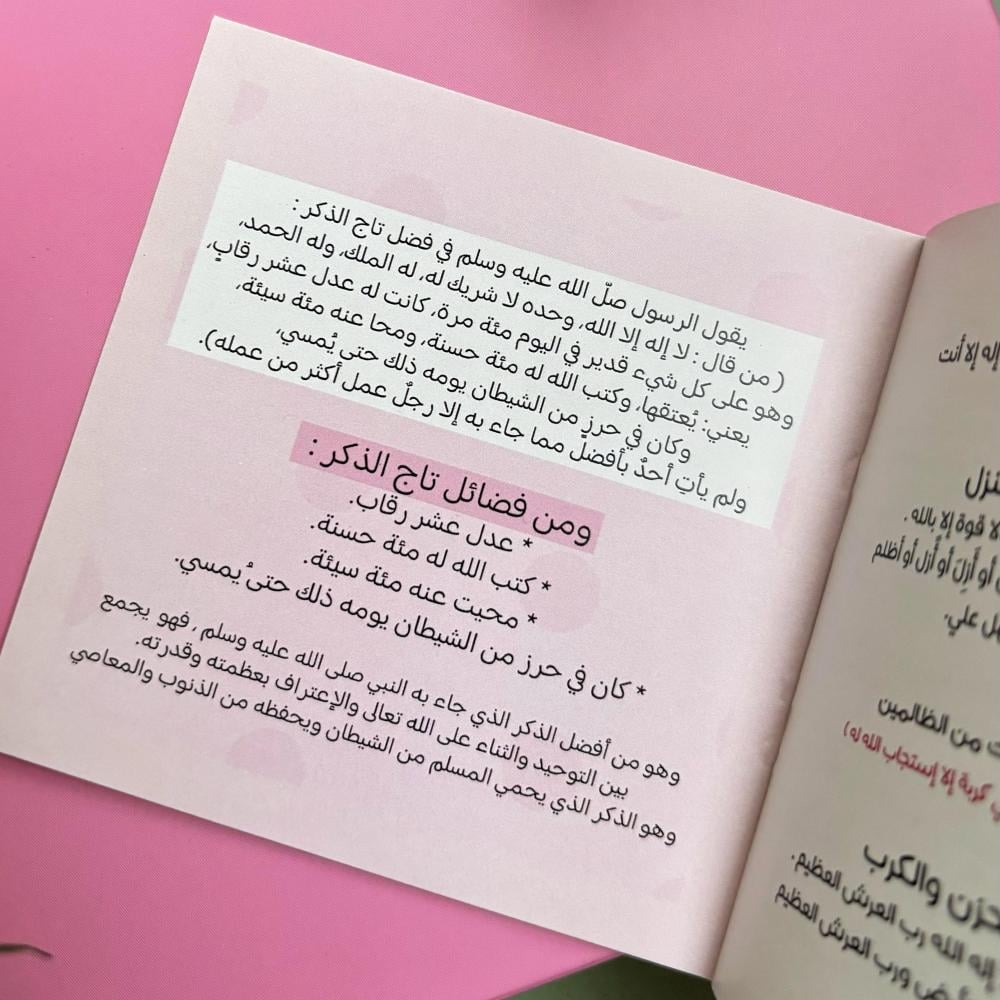 يقول الرسول صلّ الله عليه وسلم في فضل تاج الذكر :
( من قال : لا إله إلا الله، وحده لا شريك له، له الملك، وله الحمد،
وهو على كل شيء قدير في اليوم مئة مرة، كانت له عدل عشر رقابٍ،
يعني: يُعتقها، وكتب الله له مئة حسنة، ومحا عنه مئة سيئة،
وكان في حرزٍ من الشيطان يومه ذلك حتى يُمسي،
ولم يأتِ أحدٌ بأفضل مما جاء به إلا رجلٌ عمل أكثر من عمله).
ومن فضائل تاج الذكر :
* عدل عشر رقاب.
* كتب الله له مئة حسنة.
* محيت عنه مئة سيئة.
* كان في حرز من الشيطان يومه ذلك حتىُ يمسي.
وهو من أفضل الذكر الذي جاء به النبي صلى الله عليه وسلم , فهو يجمع
بين التوحيد والثناء على الله تعالى والإعتراف بعظمته وقدرته.
وهو الذكر الذي يحمي المسلم من الشيطان ويحفظه من الذنوب والمعاصي
إله إلا أنت
لا قوة إلا بالله .
أو أَزِلَ أو أُزل أو أظلم
علي.
من الظالمين
كربة إلا إستجاب الله له)
والكرب
إله الله رب العرش العظيم.
ورب العرش العظيم